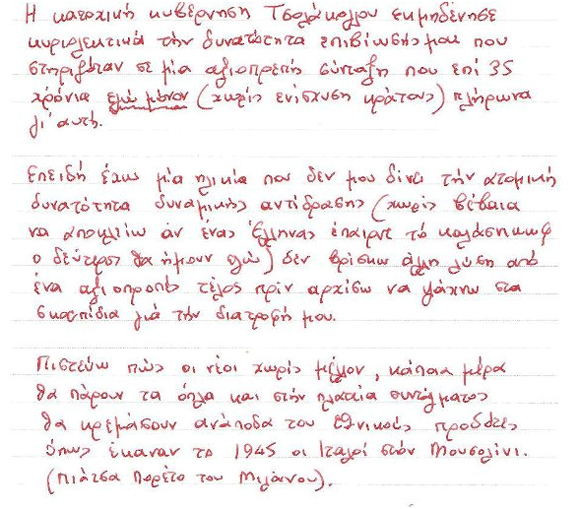 Η κατοχική κυβέρνηση Τσολάκογλου εκμηδένησε
κυριολεκτικά την δυνατότητα επιβίωσής μου που
στηριζόταν σε μία αξιοπρεπή σύνταξη που επί 35
χρόνια εγώ μόνον (χωρίς ενίσχυση κράτους) πλήρωνα
γι' αυτή.
Επειδή έχω μία ηλικία που δεν μου δίνει την ατομική
δυνατότητα δυναμικής αντίδρασης (χωρίς βέβαια
να αποκλείω άν ένας Έλληνας έπαιρνε το καλάσνικωφ
ο δεύτερος θα ήμουν εγώ) δεν βρίσκω άλλη λύση από
ένα αξιοπρεπές τέλος πρίν αρχίσω να ψάχνω στα
σκουπίδια γιά την διατροφή μου.
Πιστεύω πώς οι νέοι χωρίς μέλλον, κάποια μέρα
θα πάρουν τα όπλα και στην πλατεία συντάγματος
θα κρεμάσουν ανάποδα τους εθνικούς προδότες
όπως έκαναν το 1945 οι Ιταλοί στόν Μουσολίνι.
(Πιάτσα Πορέτο του Μιλάνου).